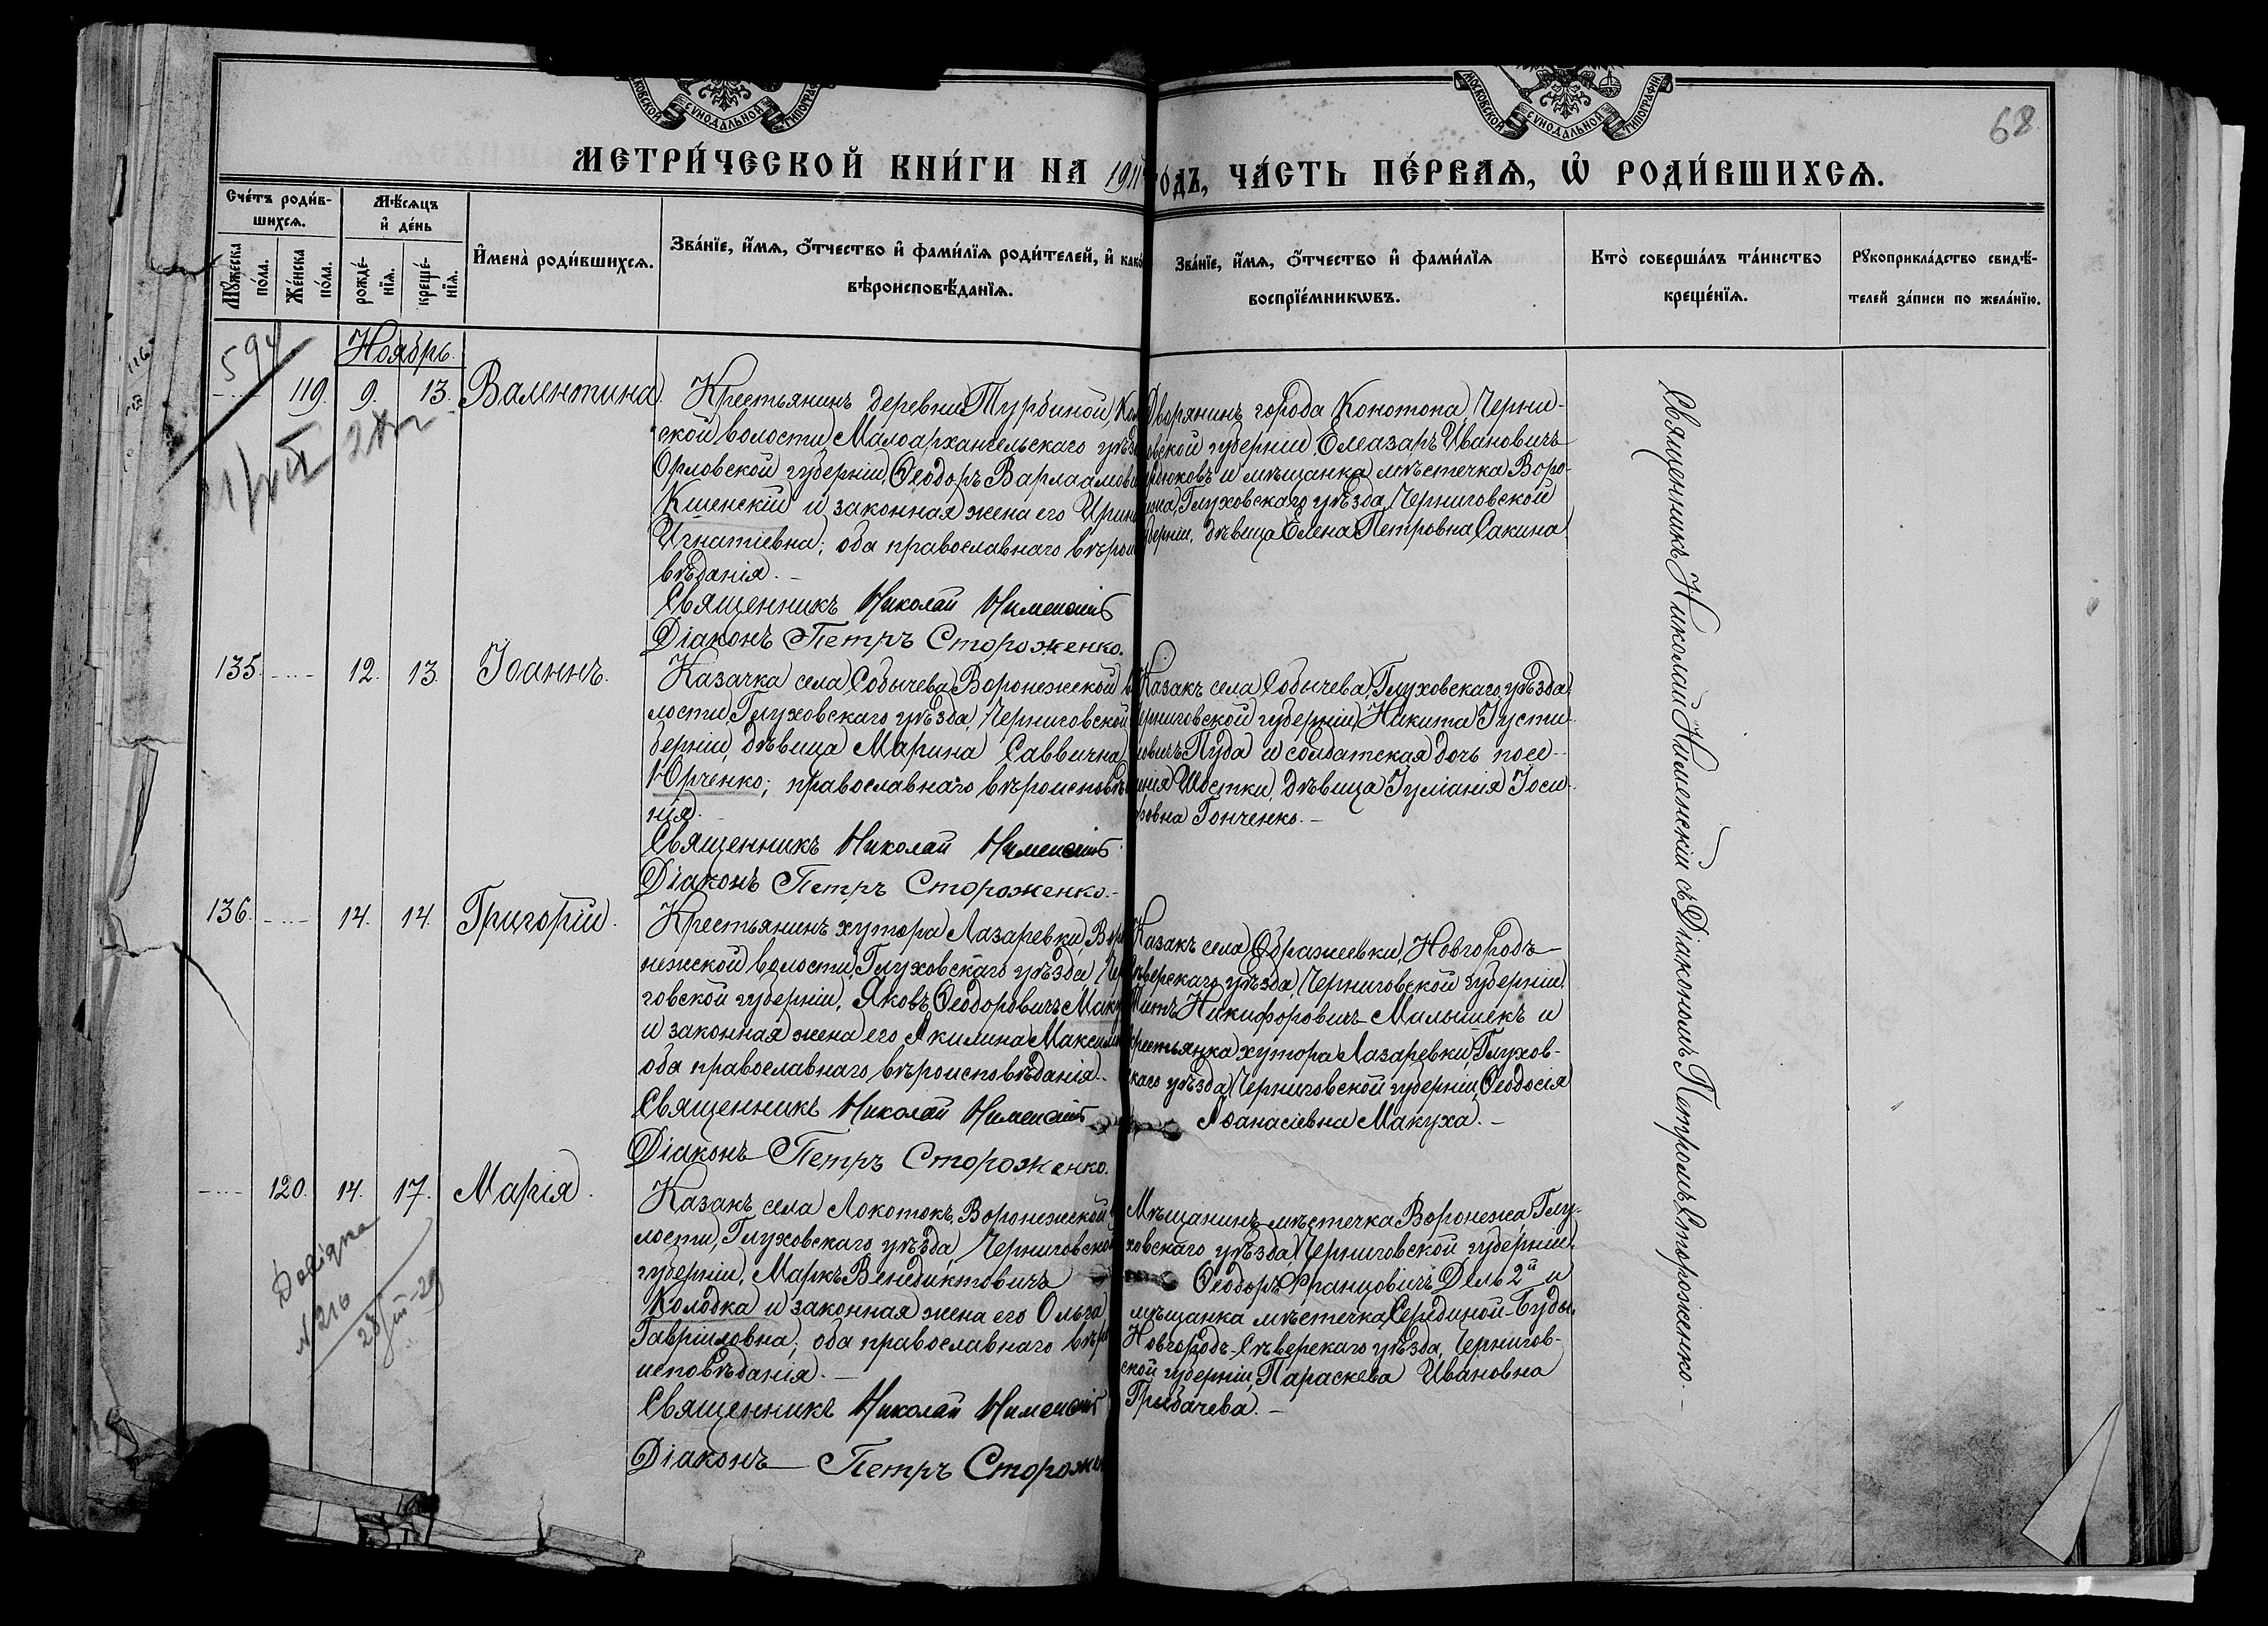 МОСКОВСКОЙ СѴНОДАЛЬНОЙ ТИПОГРАФІИ
68
МЕТРИ́ЧЕСКОЙ КНИ́ГИ НА 1911 ГО́ДЪ, ЧА́СТЬ ПЕ́РВАѦ, Ѡ҆ РОДИ́ВШИХСѦ.
Сче́тъ роди́в-
шихсѧ.
Мꙋ́жеска
по́ла.
Же́нска
по́ла.
Мѣ́сѧцъ
и҆ де́нь
рожде́-
нїѧ.
креще́-
нїѧ.
И҆мена̀ роди́вшихсѧ.
Зва́нїе, и҆́мѧ, ѻ҆́тчество и҆ фами́лїѧ роди́телей, и҆ како́
вѣроисповѣ́данїѧ.
Зва́нїе, и҆́мѧ, ѻ҆́тчество и҆ фами́лїѧ
воспрїе́мникѡвъ.
Кто̀ соверша́лъ та́инство
креще́нїѧ.
Рꙋкоприкла́дство свидѣ́-
телей за́писи по жела́нїю.
594
Ноябрь.
119. 9. 13. Валентина.
Крестьянинъ деревни Турбиной,
ской волости, Малоархангельскаго уѣзд
Орловской губерніи, Ѳеодоръ Варлаамови
Кшенскій и законная жена его Ирин
Игнатіевна; оба православнаго вѣроис
вѣданія. –
Священникъ Николай Нименскій
Діаконъ Петръ Стороженко.
Дворянинъ города Конотопа, Черни-
овской губерніи Елеазаръ Ивановичъ
рюковъ и мѣщанка мѣстечка Воро-
нежа, Глуховскаго уѣзда, Черниговской
уберніи, дѣвица Елена Петровна Сакина
135. 12. 13. Іоаннъ.
Казачка села Собычева, Воронежской в
лости, Глуховскаго уѣзда, Черниговской
берніи, дѣвица Марина Саввична
Юрченко; православнаго вѣроисповѣ
нія.
Священникъ Николай Нименскій
Діаконъ Петръ Стороженко.
Казакъ села Собычева, Глуховскаго уѣзда,
ерниговской губерніи, Никита Іусти-
новичъ Пуда и солдатская дочь посе-
енія Шостки, дѣвица Іуліанія Іоси-
фовна Гонченко. –
136. 14. 14. Григорій.
Крестьянинъ хутора Лазаревки, Вор
нежской волости, Глуховскаго уѣзда, Чер
говской губерніи, Яковъ Ѳеодоровичъ Маку
и законная жена его Акилина Максим
оба православнаго вѣроисповѣданія.
Священникъ Николай Нименскій
Діаконъ Петръ Стороженко.
Казакъ села Ображеевки, Новгородъ-
сѣверскаго уѣзда, Черниговской губерніи,
Титъ Никифоровичъ Малышекъ и
крестьянка хутора Лазаревки, Глухов-
скаго уѣзда, Черниговской губерніи, Ѳеодосія
Аѳанасіевна Макуха. –
120. 14. 17. Марія.
Казакъ села Локотокъ, Воронежской
лости, Глуховскаго уѣзда, Черниговской
губерніи, Маркъ Венедиктовичъ
Колодка и законная жена его Ольга
Гавріиловна; оба православнаго вѣро
исповѣданія. –
Священникъ Николай Нименскій
Діаконъ Петръ Сторожен
Мѣщанинъ мѣстечка Воронежа, Глу-
ховскаго уѣзда, Черниговской губерніи,
Ѳеодоръ Францовичъ Дель 2й и
мѣщанка мѣстечка Середной-Буды,
Новгородъ-Сѣверскаго уѣзда, Чернигов-
ской губерніи, Параскева Ивановна
Грибачева. –
Довідка
№ 216
Священникъ Николай Нименскій съ Діакономъ Петромъ Стороженко.